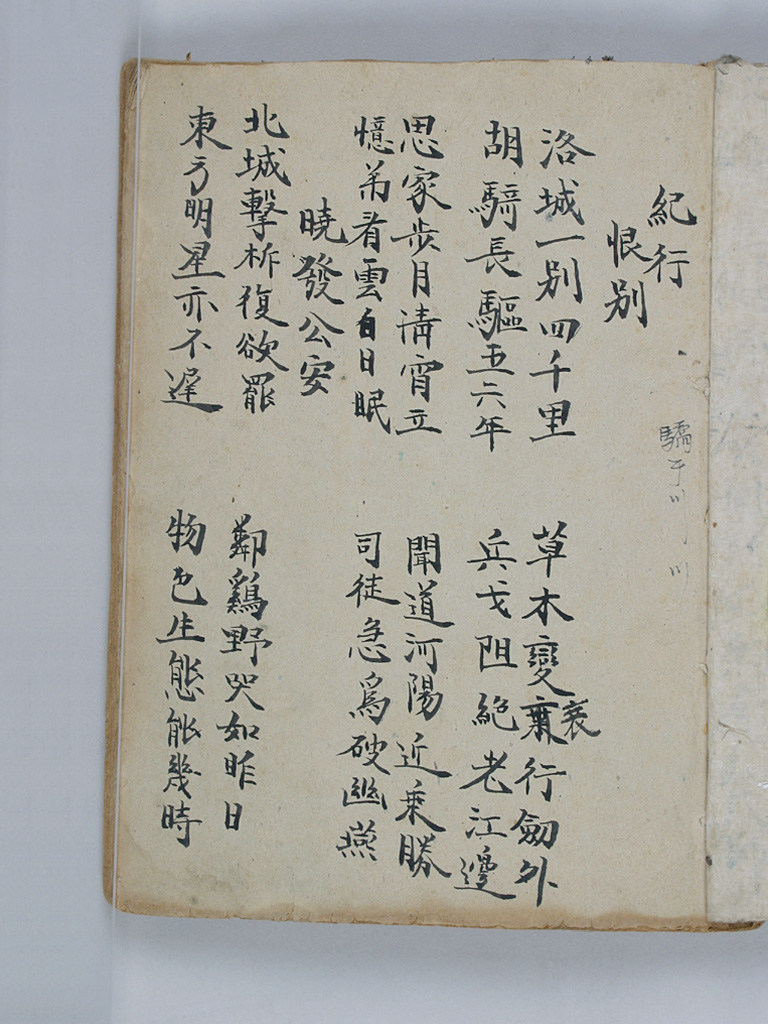 紀行
恨别
洛城一别四千里
胡騎長驅五六年
草木變衰行劒外
兵戈阻絶老江邊
思家步月清宵立
憶弟看雲白日眠
聞道河陽近乗勝
司徒急爲破幽燕
曉發公安
北城擊柝復欲罷
東方明星亦不遲
鄰鷄野哭如昨日
物色生態能幾時